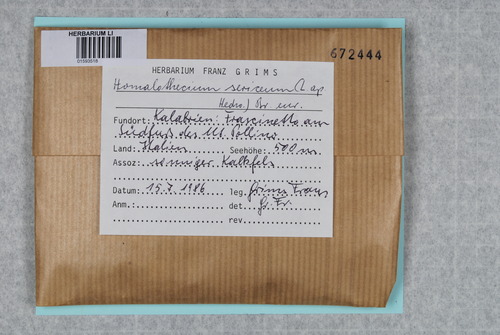 HERBARIUM LI
672444
HERBARIUM FRANZ GRIMS
Homalothecium sericeum (L. ap
Hedw.) Br. eur.
Fundort: Kalabrien: Frascinetto am
Südfuß des Mt. Pollino
Land: Italien Seehöhe: 500 m
Assoz: sonniger Kalkfels
Datum: 15.7.1986 leg. Grims Franz
Anm.: det Gr. Fr.
rev.